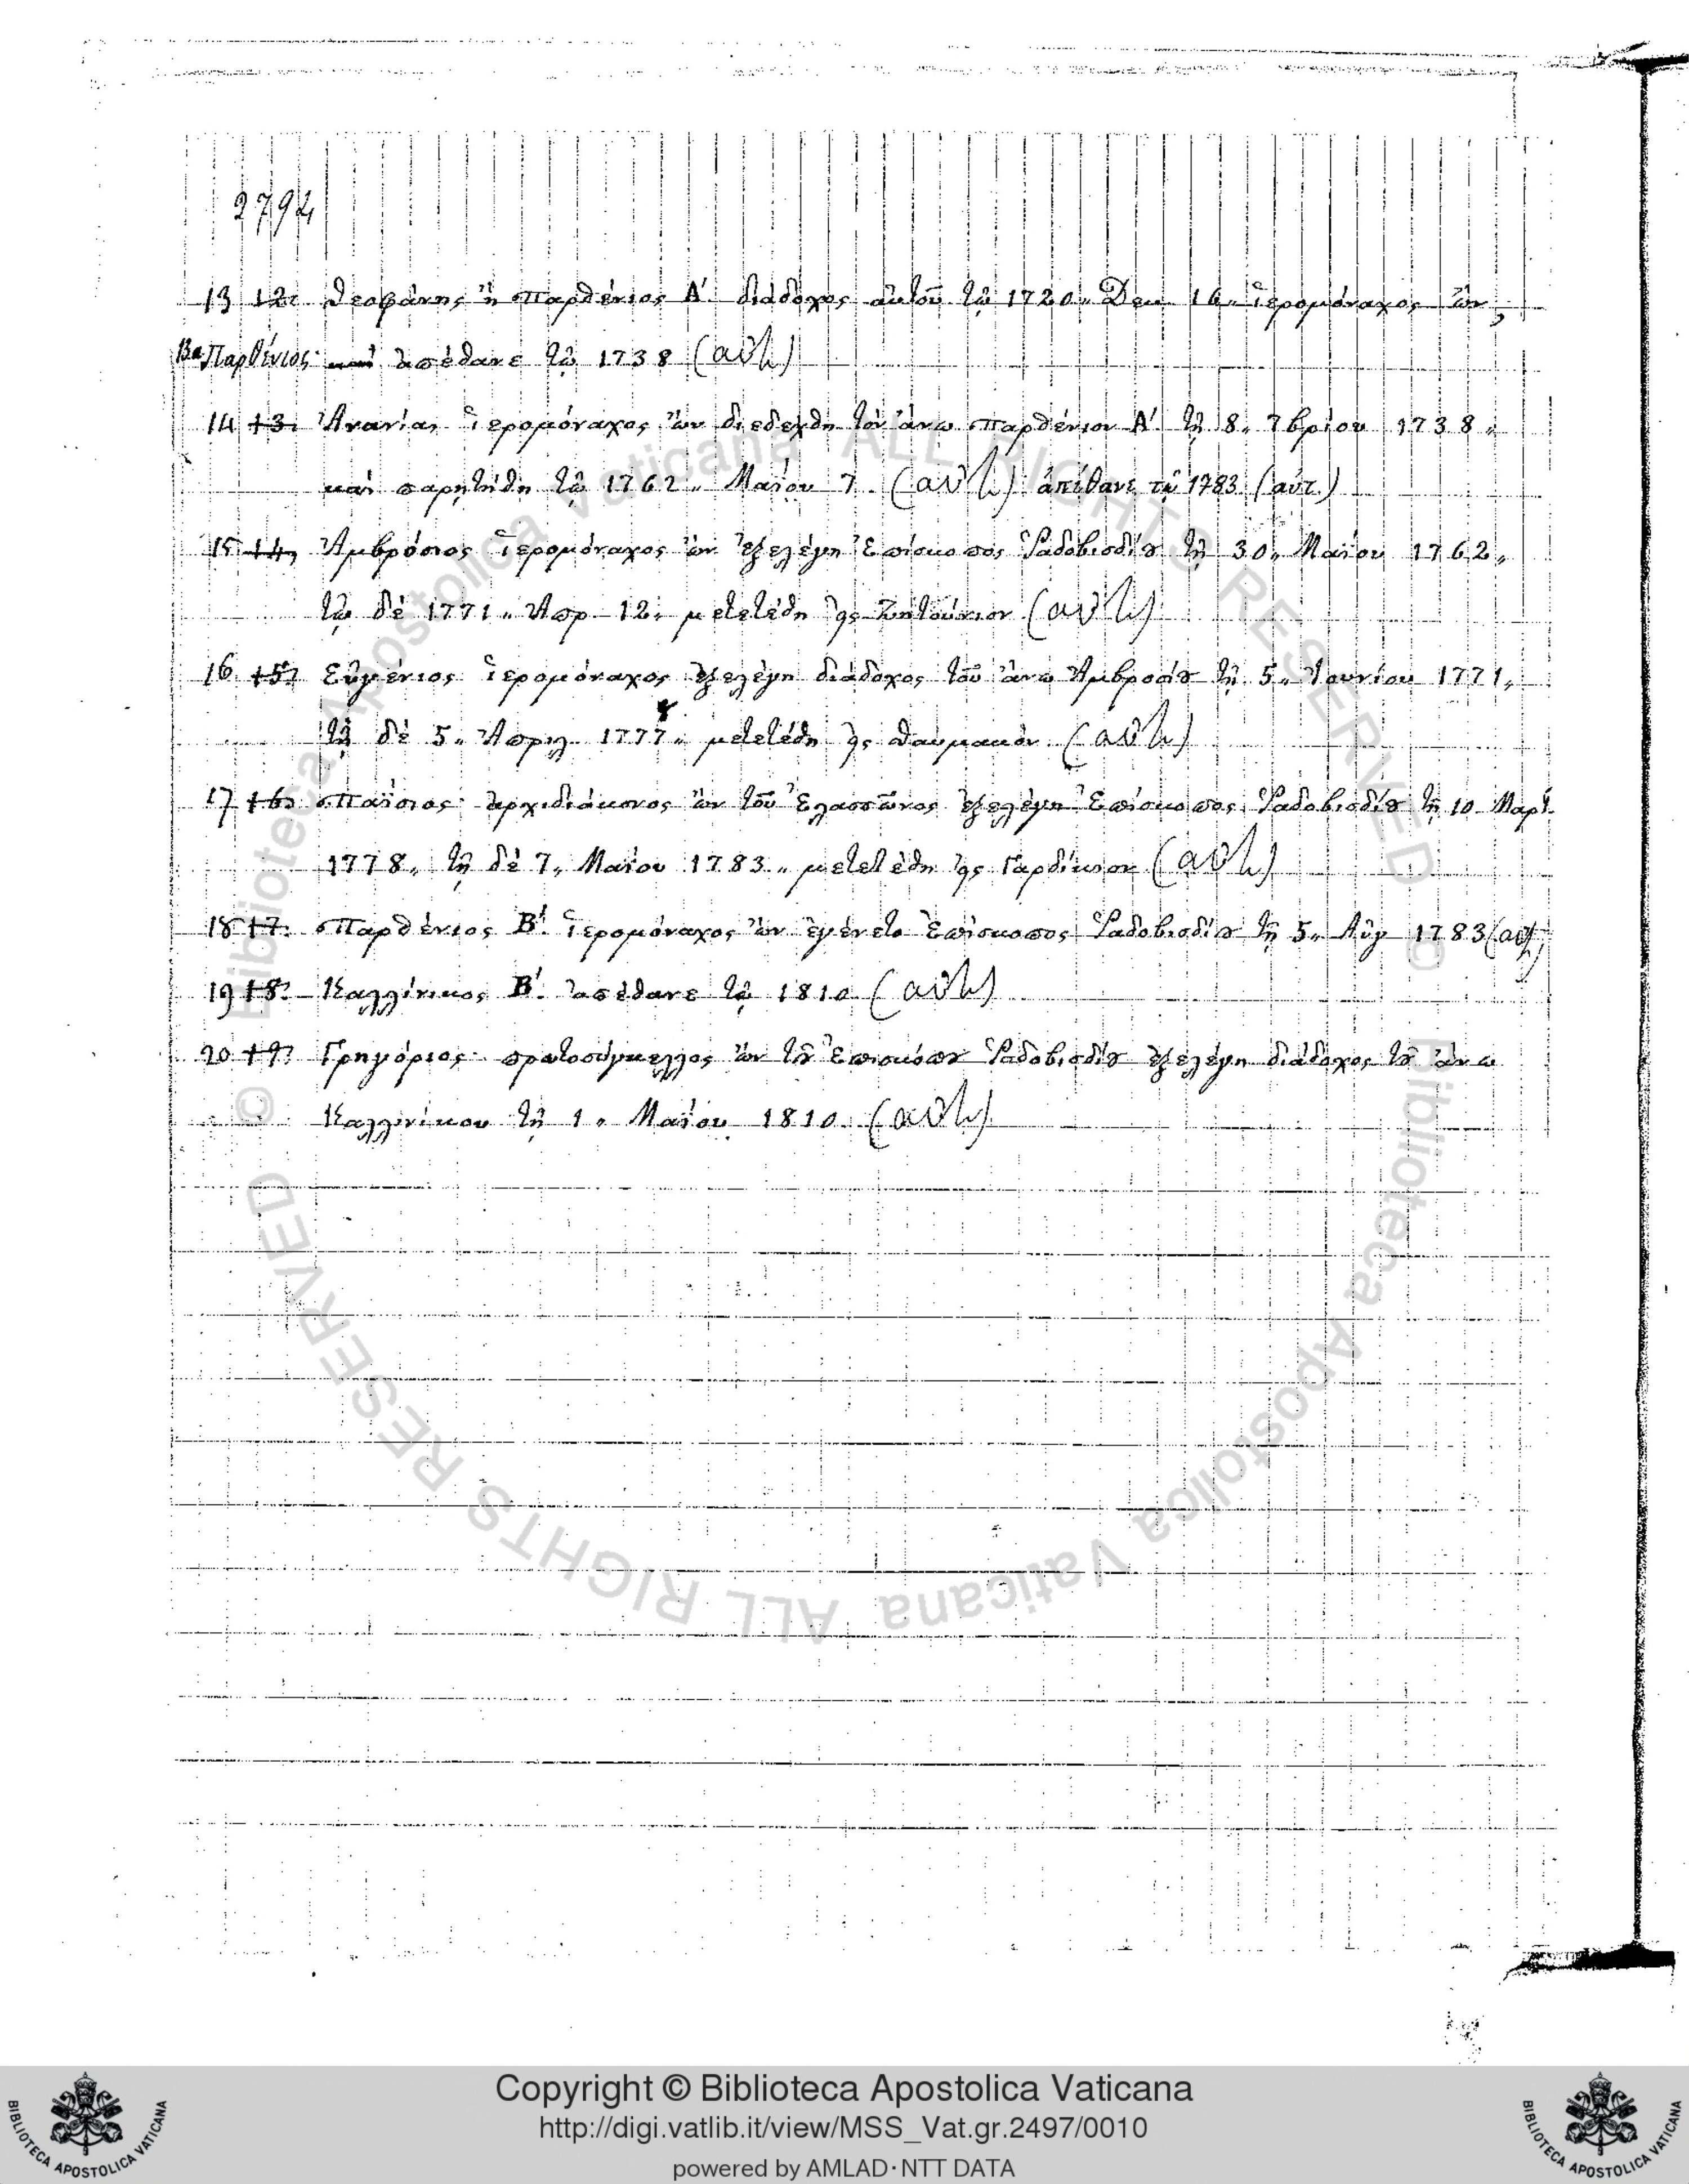 2794
13 12. Θεοφάνης ἢ Παρθένιος Α΄. διάδοχος αὐτοῦ τῷ 1720„ Δεκ 16„ ἱερομόναχος ὤν,
13α Παρθένιος καὶ ἀπέθανε τῷ 1738 (αὐτ)
14 13. Ἀνανίας ἱερομόναχος ὢν διεδέχθη τὸν ἄνω Παρθένιον Α΄ τῇ 8„ 7βρίου 1738„
καὶ παρῃτήθη τῷ 1762„ Μαΐου 7. (αὐτ) ἀπέθανε τῷ 1783 (αὐτ.)
15 14, Ἀμβρόσιος ἱερομόναχος ὢν ἐξελέγη Ἐπίσκοπος Ῥαδοβισδίȣ τῇ 30„ Μαΐου 1762„
τῷ δὲ 1771„ Ἀπρ 12„ μετετέθη εἰς Ζητούνιον (αὐτ)
16 15. Εὐγένιος ἱερομόναχος ἐξελέγη διάδοχος τοῦ ἄνω Ἀμβροσίȣ τῇ 5„ Ἰουνίου 1771,
τῇ δὲ 5„ Ἀπριλ 1777„ μετετέθη εἰς Θαυμακόν (αὐτ)
17 16. Παΐσιος ἀρχιδιάκονος ὢν τοῦ Ἐλασσῶνος ἐξελέγη Ἐπίσκοπος Ῥαδοβισδίȣ τῇ 10 Μαρτ
1778„ τῇ δὲ 7„ Μαΐου 1783„ μετετέθη εἰς Γαρδίκιον (αὐτ)
18 17. Παρθένιος Β΄. ἱερομόναχος ὢν ἐγένετο Ἐπίσκοπος Ῥαδοβισδίȣ τῇ 5„ Αὐγ 1783 (αὐτ)
19 18. Καλλίνικος Β΄. ἀπέθανε τῷ 1810 (αὐτ)
20 19. Γρηγόριος πρωτοσύγκελλος ὢν τȣ͂ Ἐπισκόπȣ Ῥαδοβισδίȣ ἐξελέγη διάδοχος τȣ͂ ἄνω
Καλλινίκου τῇ 1„ Μαΐου 1810 (αὐτ)
© Biblioteca Apostolica Vaticana ALL RIGHTS RESERVED © Biblioteca Apostolica Vaticana ALL RIGHTS RESERVED
Copyright © Biblioteca Apostolica Vaticana
http://digi.vatlib.it/view/MSS_Vat.gr.2497/0010
powered by AMLAD·NTT DATA
BIBLIOTECA APOSTOLICA VATICANA
BIBLIOTECA APOSTOLICA VATICANA